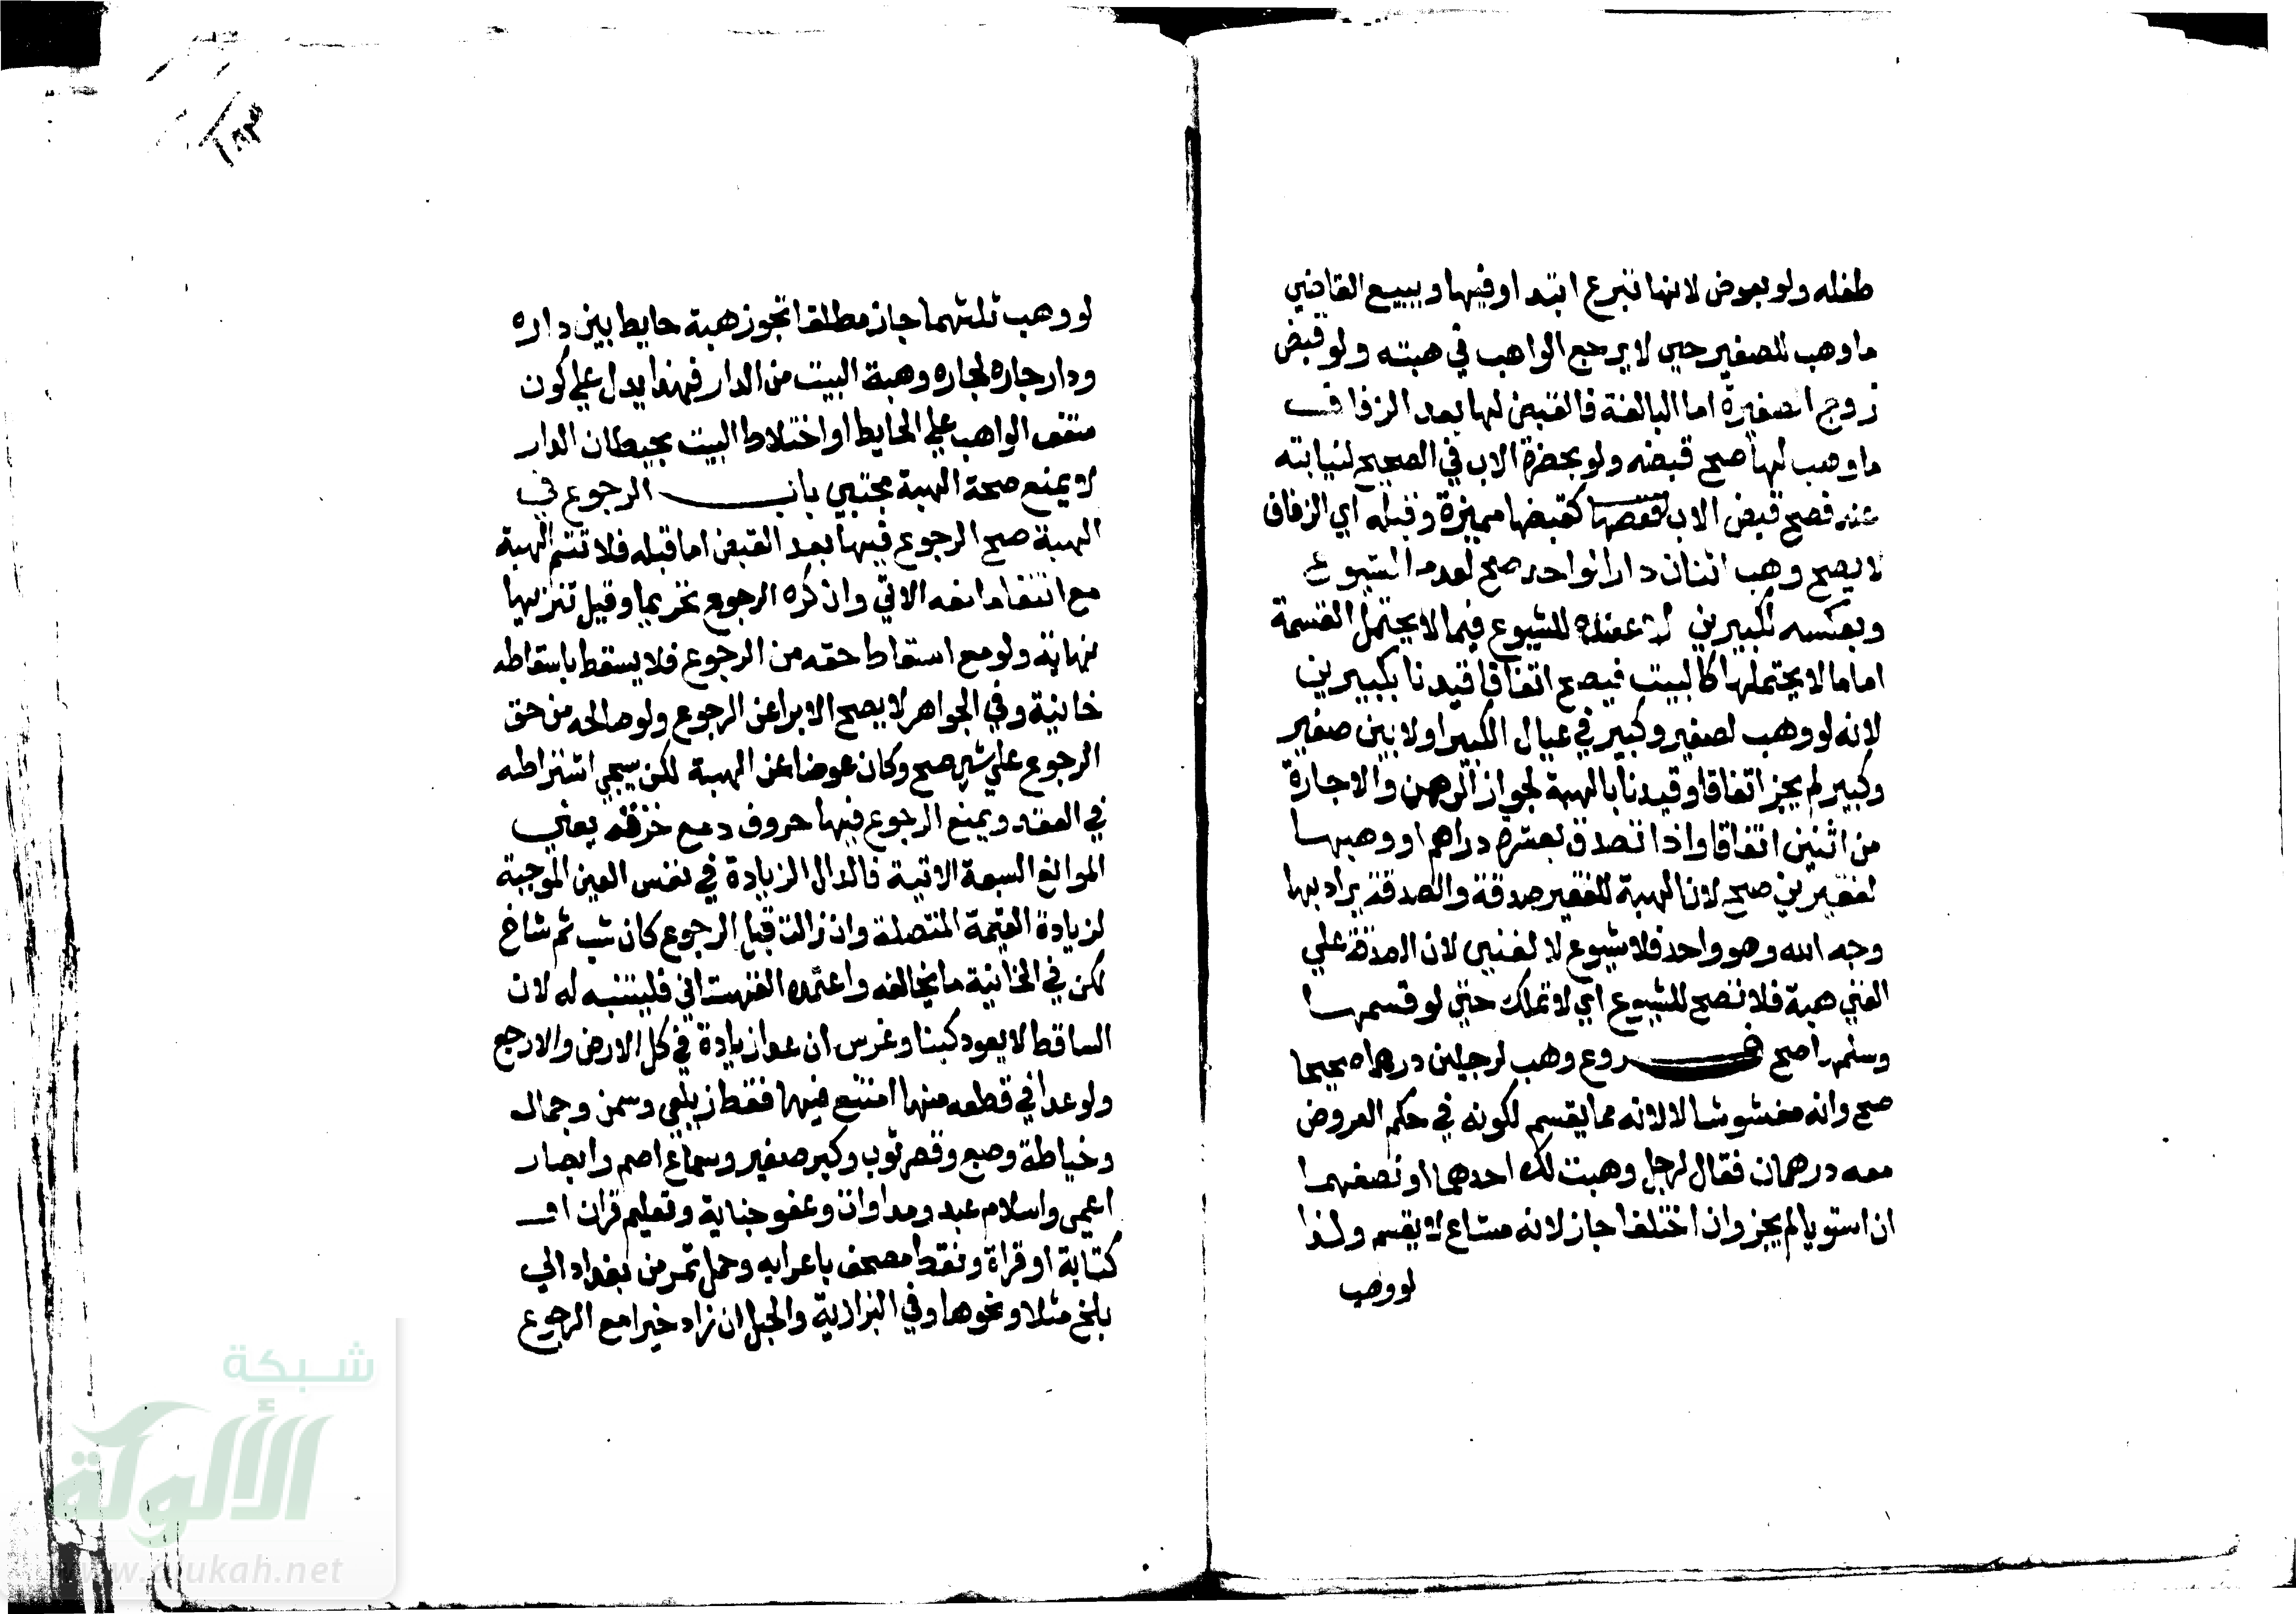 طفله ولو بعوض لانها تبرع ابتداء وفيها ويبيع القاضي
ما وهب للصغير حتي لا يرجع الواهب في هبته ولو قبض
زوج الصغيرة اما البالغة فالقبض لها بعد الزفاف
ما وهب لها صح قبضه ولو بحضرة الاب في الصحيح لنيابته
عنه فصح قبض الاب كقبضها مميزة وقبله اي الزفاف
لا يصح وهب اثنان دارا لواحد صح لعدم الشيوع
وبعكسه لكبيرين لا عنده للشيوع فيما لا يحتمل القسمة
اما ما لا يحتملها كالبيت فيصح اتفاقا قيدنا بكبيرين
لانه لو وهب لصغير وكبير في عيال الكبير اولا بين صغير
وكبير لم يجز اتفاقا وقيدنا بالهبة لجواز الرهن والاجارة
من اثنين اتفاقا واذا تصدق بعشرة دراهم او وهبها
لفقيرين صح لان الهبة للفقير صدقة والصدقة يراد بها
وجه الله وهو واحد فلا شيوع لا لغنيين لان الصدقة علي
الغني هبة فلا تصح للشيوع اي لا تملك حتي لو قسمها
وسلمها صح فــــروع وهب لرجلين درهما صحيحا
صح وانه مغشوشا لا لانه مما يقسم لكونه في حكم العروض
معه درهمان فقال لرجل وهبت لك احدهما او نصفهما
ان استويا لم يجز وان اختلفا جاز لانه مشاع لا يقسم ولذا
لو وهب
لو وهب ثلثهما جاز مطلقا تجوز هبة حايط بين داره
ودار جاره لجاره وهبة البيت من الدار فهذا يدل علي كون
سقف الواهب علي الحايط او اختلاط البيت بحيطان الدار
لا يمنع صحة الهبة مجتبي باب الرجوع في
الهبة صح الرجوع فيها بعد القبض اما قبله فلا تتم الهبة
مع انتفاء مانعه الاتي وان كره الرجوع تحريما وقيل تنزيها
نهاية ولو مع اسقاط حقه من الرجوع فلا يسقط باسقاطه
خانية وفي الجواهر لا يصح الابرا عن الرجوع ولو صالحه من حق
الرجوع علي شي صح وكان عوضا عن الهبة لكن سيجي اشتراطه
في العقد ويمنع الرجوع فيها حروف دمع خزقه يعني
الموانع السبعة الاتية فالدال الزيادة في نفس العين الموجبة
لزيادة القيمة المتصلة وان زالت قبل الرجوع كان شب ثم شاخ
لكن في الخانية ما يخالفه واعتمده القهستاني فليتنبه له لان
الساقط لا يعود كبنا وغرس ان عدا زيادة في كل الارض والا رجع
ولو عدا في قطعه منها امتنع فيها فقط زيلعي وسمن وجمال
وخياطة وصبغ وقصر ثوب وكبر صغير وسماع اصم وابصار
اعمي واسلام عبد ومداواته وعفو جناية وتعليم قران او
كتابة او قراة ونقط مصحف باعرابه وحمل تمر من بغداد الي
بلخ مثلا ونحوها وفي البزازية والحبل ان زاد خيرا منع الرجوع
شبكة
الألوكة
www.alukah.net